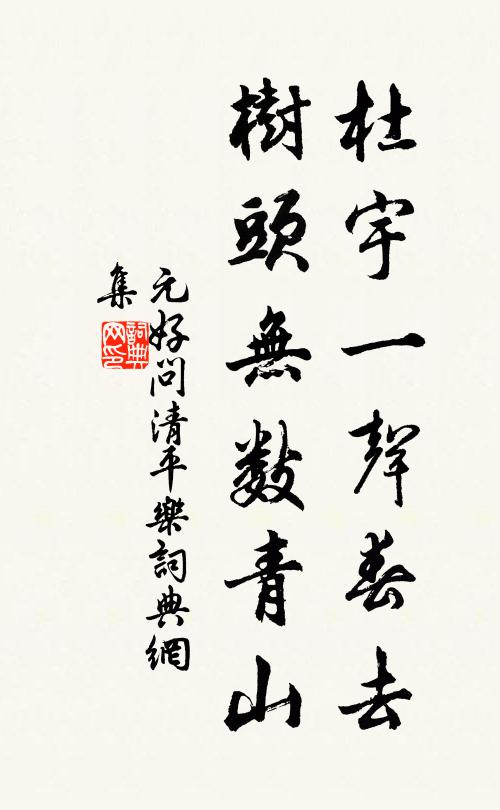 杜宇一聲春去
樹頭無數青山
元好問清平樂詞典網
集
詞典网印